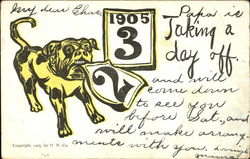 My dear
Papa is
1905
3
2
Taking a
day off.
and will
come down
to see you
before Sat, and
will make arrange
ments with you.
Copyright, 1905, by U. N. Co.